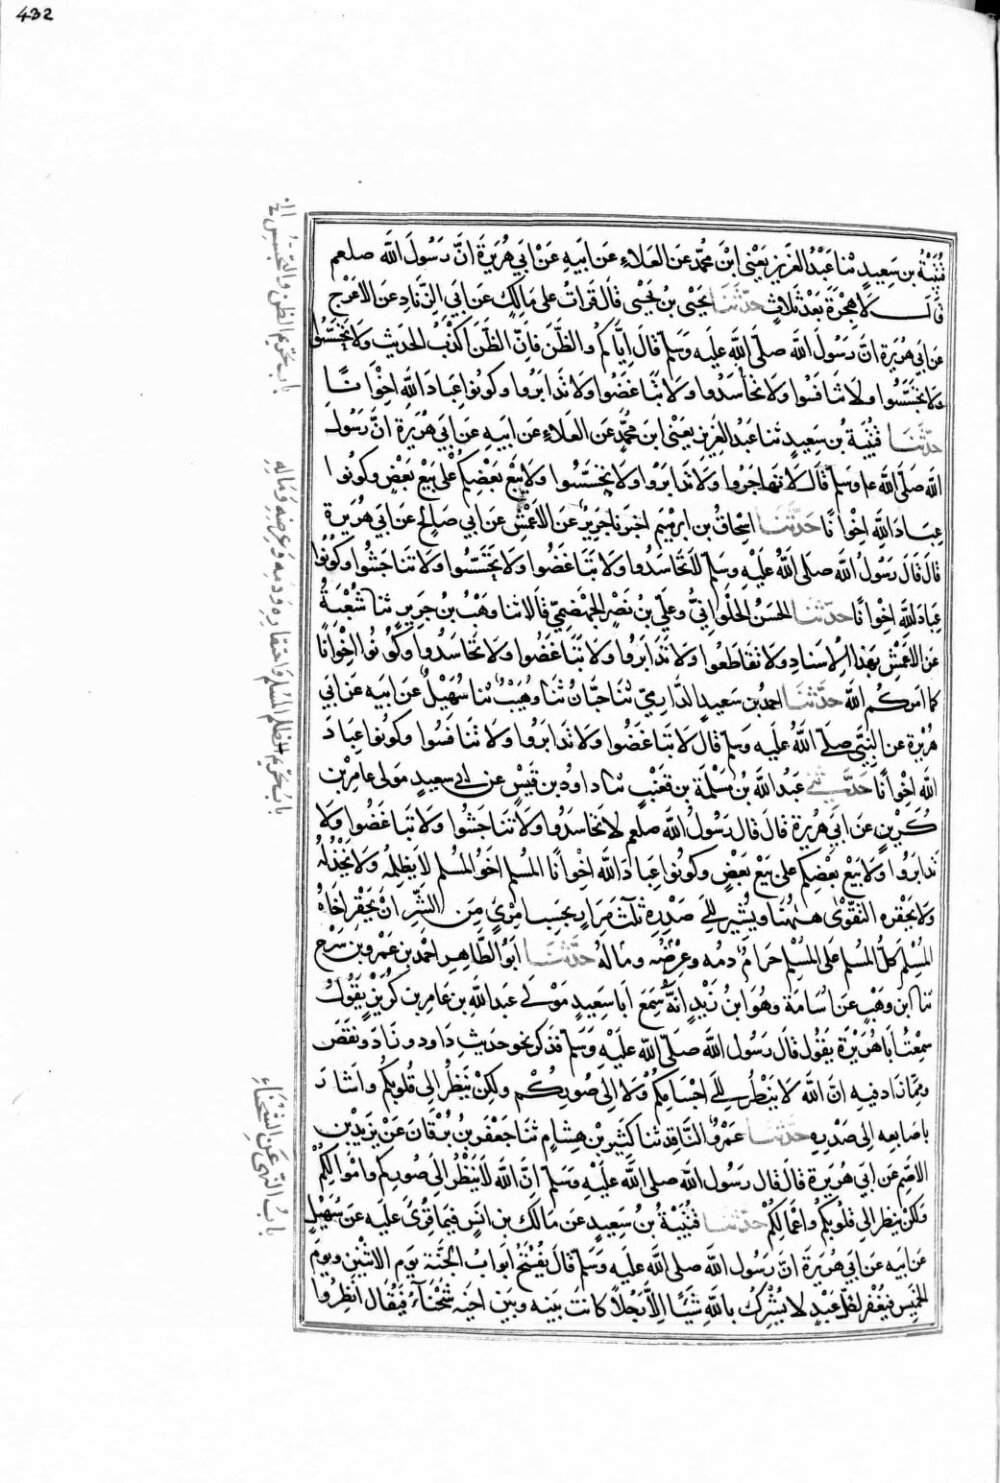 432
قُتَيْبَةُ بن سَعِيدٍ ثنا عَبْدُ العَزيز يَعْنى ابْنَ مُحَمَّدٍ عَن العَلَاءِ عَن ابِيهِ عَنْ ابي هُرَيْرَةَ انَّ رَسُولَ اللَّه صلعم
قالـــ لَا هِجْرَةَ بَعْدَ ثَلَاثٍ حدّثَنَا يَحْيى بن يَحْيى قالَ قَراتُ على مَالِكٍ عَن ابي الزِّنَادِ عَن الاعْرَج
عَن ابي هُرَيرَة انَّ رَسُولَ الله صلّى اللَّه عَليه وسَلم قالَ ايَّاكُم والظَّن فانّ الظّنَ اكذَبُ الحَديث ولا تحَسّسُوا
ولا تجَسَّسُوا ولا تنَافَسُوا ولا تحَاسَدُوا ولا تبَاغَضُوا ولا تَدابَرُوا وكونُوا عِبادَ اللَّه اخْوانًا
حَدّثنَا قُتَيبَة بن سَعِيدٍ ثنا عَبد العَزيزِ يعنى ابن مُحَمَّدٍ عَن العَلاءِ عَن ابيهِ عَن ابي هُرَيرَة انَّ رَسُولَ
اللَّه صَلّى اللَّه علـ وسَلم قَالَ لا تهَاجَرُوا ولا تَدابَرُوا ولا تجَسّسُوا ولا يَبع بَعْضُكُم عَلى بَيْع بَعْضٍ وكونُوا
عِبَادَ اللَّه اخْوانًا حَدَّثَنَا اسْحاقُ بن ابرهيم اخبرنا جَرِيرٌ عَن الاعْمَشِ عَن ابي صَالِحٍ عَن ابي هُرَيرة
قالَ قالَ رَسُولُ اللَّه صلى اللَّهُ عَليْهِ وسَلم لا تحَاسَدُوا ولا تبَاغَضُوا ولا تجَسّسُوا ولا تناجَشُوا وكونُوا
عِبَادَ اللَّه اخْوانًا حدّثنَا الحَسَنُ الحُلوانِيُّ وعَلي بن نَصْرٍ الجَهْضَمِيّ قالا ثنا وَهْبُ بن جَريرٍ ثنا شُعْبَةُ
عَن الاعمَشِ بهَذا الاسنادِ ولا تقَاطَعُوا ولا تَدابَرُوا ولا تبَاغَضُوا ولا تحَاسَدُوا وكونُوا اخْوانًا
كما امَركُم اللَّه حدَّثنَا احمدُ بن سَعِيدٍ الدَّارمِيّ ثنا حَبَّانُ ثنا وُهَيْبٌ ثنا سُهَيْلٌ عَن ابيه عَن ابي
هُرَيْرة عن النَّبيّ صلى اللَّه عَليه وسَلم قالَ لا تبَاغَضُوا ولا تدابَرُوا ولا تَنافَسُوا وكونُوا عِبَادَ
اللَّه اخْوانًا حَدّثني عَبدُ اللَّه بن مَسْلَمَة بن قَعْنَبٍ ثنا داوُد بن قَيْسٍ عن ابي سعِيدٍ مَولى عامِر بن
كُرَيْزٍ عَن ابي هُرَيرَة قالَ قالَ رَسُولُ اللَّه صلعم لا تحَاسَدُوا ولا تناجَشُوا ولا تَباغَضُوا ولا
تَدابَرُوا ولا يَبع بَعْضُكُم على بَيْع بَعْضٍ وكونُوا عِبَادَ اللَّه اخْوانًا المُسلم اخُو المُسلم لا يَظلِمُه ولا يَخْذُلُه
ولا يَحْقِرُه التَّقوْى هَاهُنَا ويُشِير الى صَدْرِه ثلثَ مَرَارٍ بحَسبِ امْرئٍ مِن الشَّرّ انْ يَحْقِرَ اخَاهُ
المُسْلِمَ كُلّ المُسلم عَلى المُسْلم حَرامٌ دَمُه وعِرْضُه ومَالهُ حَدّثنَا ابُو الطَّاهِر احْمَد بن عَمْرو بن سَرْح
ثنا ابن وَهْبٍ عَن اسَامَة وهُوَ ابْنُ زَيْدٍ انَّهُ سَمِعَ ابَا سَعِيدٍ مَوْلى عَبد اللَّه بن عَامِر بن كُرَيْزٍ يَقُولُ
سمِعْتُ ابَا هُرَيْرَة يَقُولُ قالَ رَسُول اللَّه صَلّى اللَّه عَلَيه وَسَلم فذكرَ نحْوَ حَديث دَاود وزَادَ ونَقَصَ
ومِمَّا زَادَ فيهِ انَّ اللَّه لا يَنْظُر الى اجْسَامِكُم ولا الى صُوَرِكُم ولكِنْ يَنظُر الى قُلوبِكُم واشَارَ
باصَابِعِه الى صَدْرِه حَدّثنَا عَمْرٌو النَّاقِد ثنا كثيرُ بن هِشامٍ ثنا جَعْفَر بن بُرْقَانَ عَنْ يَزيد بن
الاصَمّ عَن ابي هُرَيرَة قالَ قال رَسُول اللَّه صلى اللَّه عَلَيْهِ وسَلم انَّ اللَّه لا يَنْظُر الى صُوَرِكُم وامْوَالِكُمْ
ولكنْ يَنظر الى قلُوبِكُم واعْمَالِكُم حَدّثنَا قُتَيْبَة بن سَعِيدٍ عَن مَالِك بن انَسٍ فيمَا قُرِئ عَليه عَن سُهَيْلٍ
عَن ابيه عَن ابي هُرَيرَة انَّ رَسُول اللَّه صلى اللَّه عَليه وسَلم قالَ يُفْتَحُ ابوابُ الجَنَّة يَوم الاثنَيْن ويَومَ
الخَمِيس فيُغفَر لكلّ عَبْدٍ لا يُشْرِكُ باللَّهِ شَيئًا الّا رَجُلًا كانَتْ بَينه وبَين اخيْه شَحْنَاءُ فيُقَال انْظِرُوا
باب تحريم الظن والتجسّس الخ
باب تحريم ظلم المسلم واحتقاره ودمه وعرضه وماله
باب النَّهى عن الشحناء